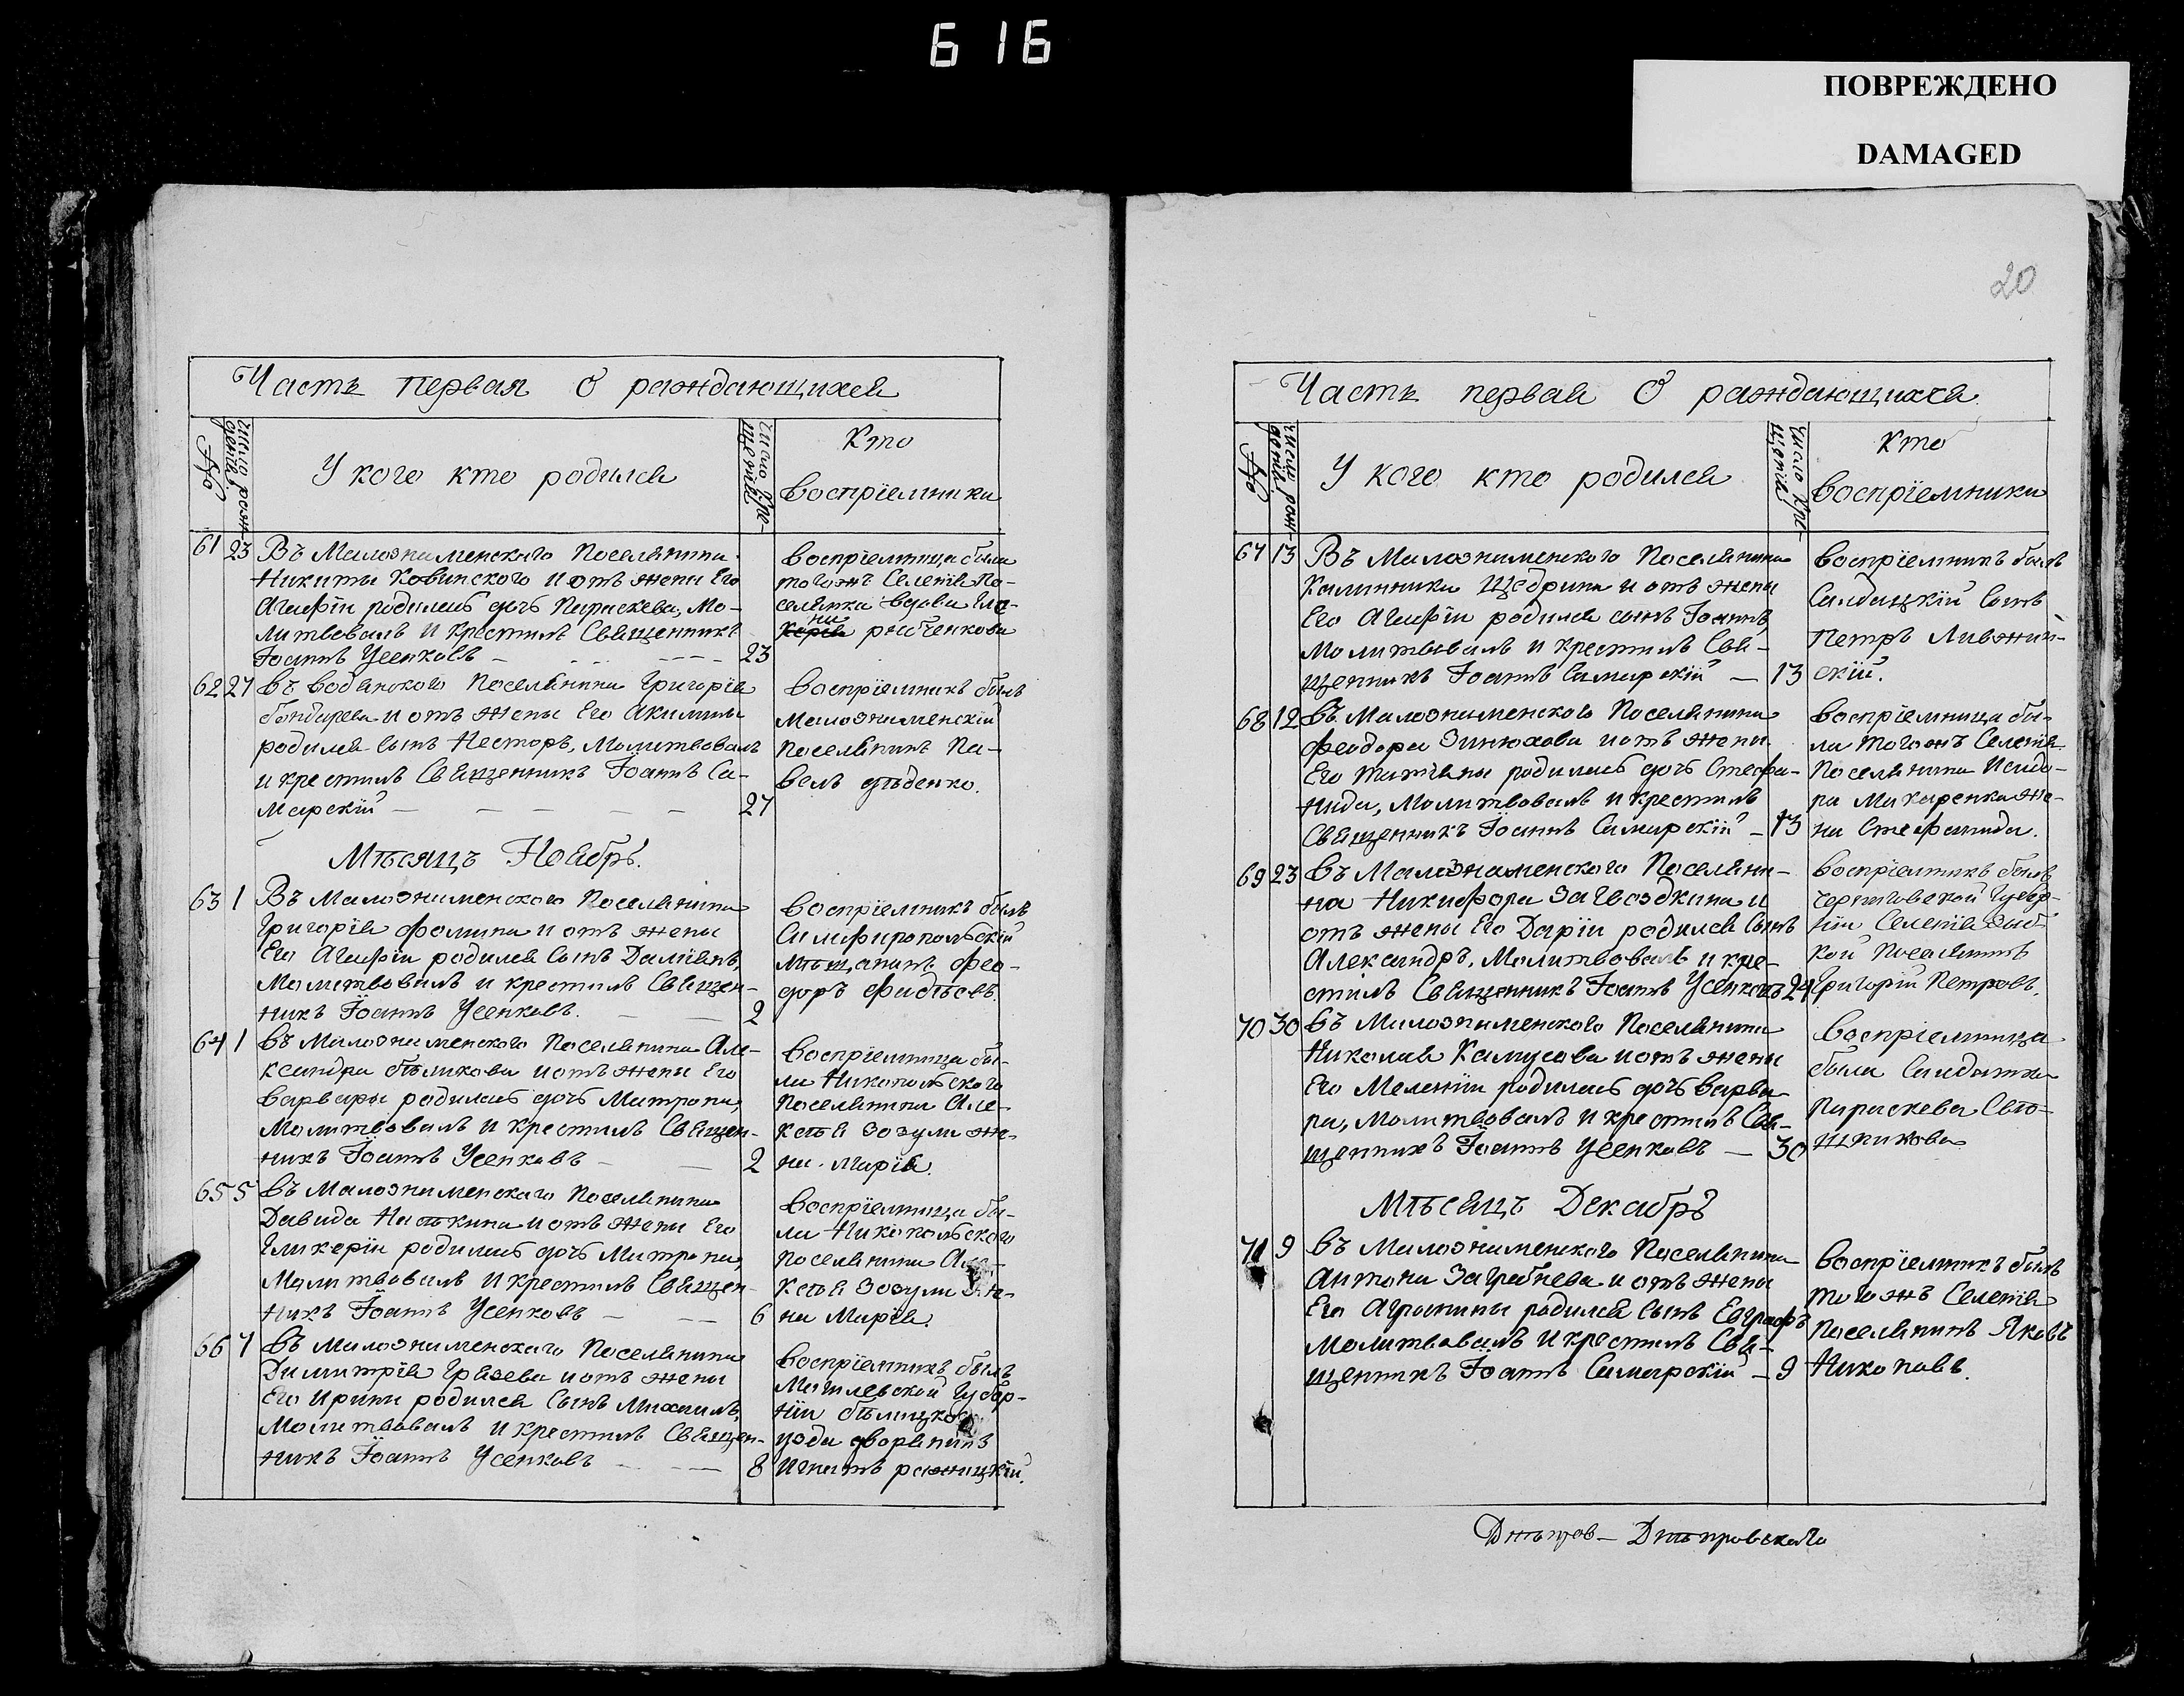 616
ПОВРЕЖДЕНО
DAMAGED
20
Часть первая О раждающихся
№
число рож-
денія
У кого кто родился
число кре-
щенія
Кто
воспріемники
61 23 Въ Малознаменскаго Поселянина
Никиты Ковинского и отъ жены Его
Агафіи родилась дочь Параскева, Мо-
литвовалъ и крестилъ Священникъ
Іоаннъ Усенковъ - - - 23
воспріемница была
тогожъ Селенія По-
селянка вдова Гла-
ни
рыбченкова
62 27 Въ водянского Поселянина Григорія
бондарева и отъ жены Его Акилины
родился сынъ Несторъ, Молитвовалъ
и крестилъ Священникъ Іоаннъ Са-
марскій - - - 27
Воспріемникъ былъ
Малознаменскій
Поселянинъ Па-
велъ дѣденко.
Мѣсяцъ Ноябрь.
63 1 Въ Малознаменского Поселянина
Григорія Фомина и отъ жены
Его Агафіи родился сынъ Даміянъ,
Молитвовалъ и крестилъ Священ-
никъ Іоаннъ Усенковъ. - - 2
Воспріемникъ былъ
Симферопольскій
Мѣщанинъ Фео-
доръ Фадѣевъ.
64 1 Въ Малознаменского Поселянина Але-
ксандра бѣликова и отъ жены Его
варвары родилась дочь Матрона,
Молитвовалъ и крестилъ Священ-
никъ Іоаннъ Усенковъ - - 2
Воспріемница бы-
ла Никопольского
Поселянина Але-
ксѣя Зозули же-
на Марія.
65 5 Въ Малознаменского Поселянина
Давида и отъ жены Его
Гликеріи родилась дочь Матрона,
Молитвовалъ и крестилъ Священ-
никъ Іоаннъ Усенковъ - - 6
Воспріемница бы-
ла Никопольского
поселянина Але-
ксѣя Зозули же-
на Марія.
66 7 Въ Малознаменского Поселянина
Димитрія Грязева и отъ жены
Его Ирины родился Сынъ Михаилъ,
Молитвовалъ и крестилъ Священ-
никъ Іоаннъ Усенковъ - - 8
Воспріемникъ былъ
Могилевской Губер-
ніи бѣлицкого
уода дворянинъ
Игнатъ ражицкій.
Часть первая О раждающихся
№
число рож-
денія
У кого кто родился
число кре-
щенія
Кто
воспріемники
67 13 Въ Малознаменского Поселянина
Калинника Щедрина и отъ жены
Его Агафіи родился сынъ Іоаннъ,
Молитвовалъ и крестилъ Свя-
щенникъ Іоаннъ Самарскій - 13
воспріемникъ былъ
Салдацкій Сынъ
Петръ
скій.
68 12 Въ Малознаменского Поселянина
Феодора Зинюхова и отъ жены
Его татіяны родилась дочь Стефа-
нида, Молитвовалъ и крестилъ
Священникъ Іоаннъ Самарскій - 13
Воспріемница бы-
ла тогожъ Селенія
Поселянина Исидо-
ра Макаренка же-
на Стефанида.
69 23 Въ Малознаменского Поселяни-
на Никифора Загвоздкина и
отъ жены Его Даріи родился Сынъ
Александръ, Молитвовалъ и кре-
стилъ Священникъ Іоаннъ Усенковъ 24
Воспріемникъ былъ
черниговской Губер-
ніи Селенія
кой Поселянинъ
Григорій Петровъ.
70 30 Въ Малознаменского Поселянина
Николая Камусова и отъ жены
Его Меленіи родилась дочь варва-
ра, Молитвовалъ и крестилъ Свя-
щенникъ Іоаннъ Усенковъ - 30
Воспріемница
была Салдатка
Параскева

Мѣсяцъ Декабрь
71 9 Въ Малознаменского Поселянина
Антона Загребнева и отъ жены
Его Агрипины родился сынъ Евграфъ
Молитвовалъ и крестилъ Свя-
щенникъ Іоаннъ Самарскій - 9
Воспріемникъ былъ
тогожъ Селенія
Поселянинъ Яковъ
Никоновъ.
Днѣпров- Днѣпровскаго